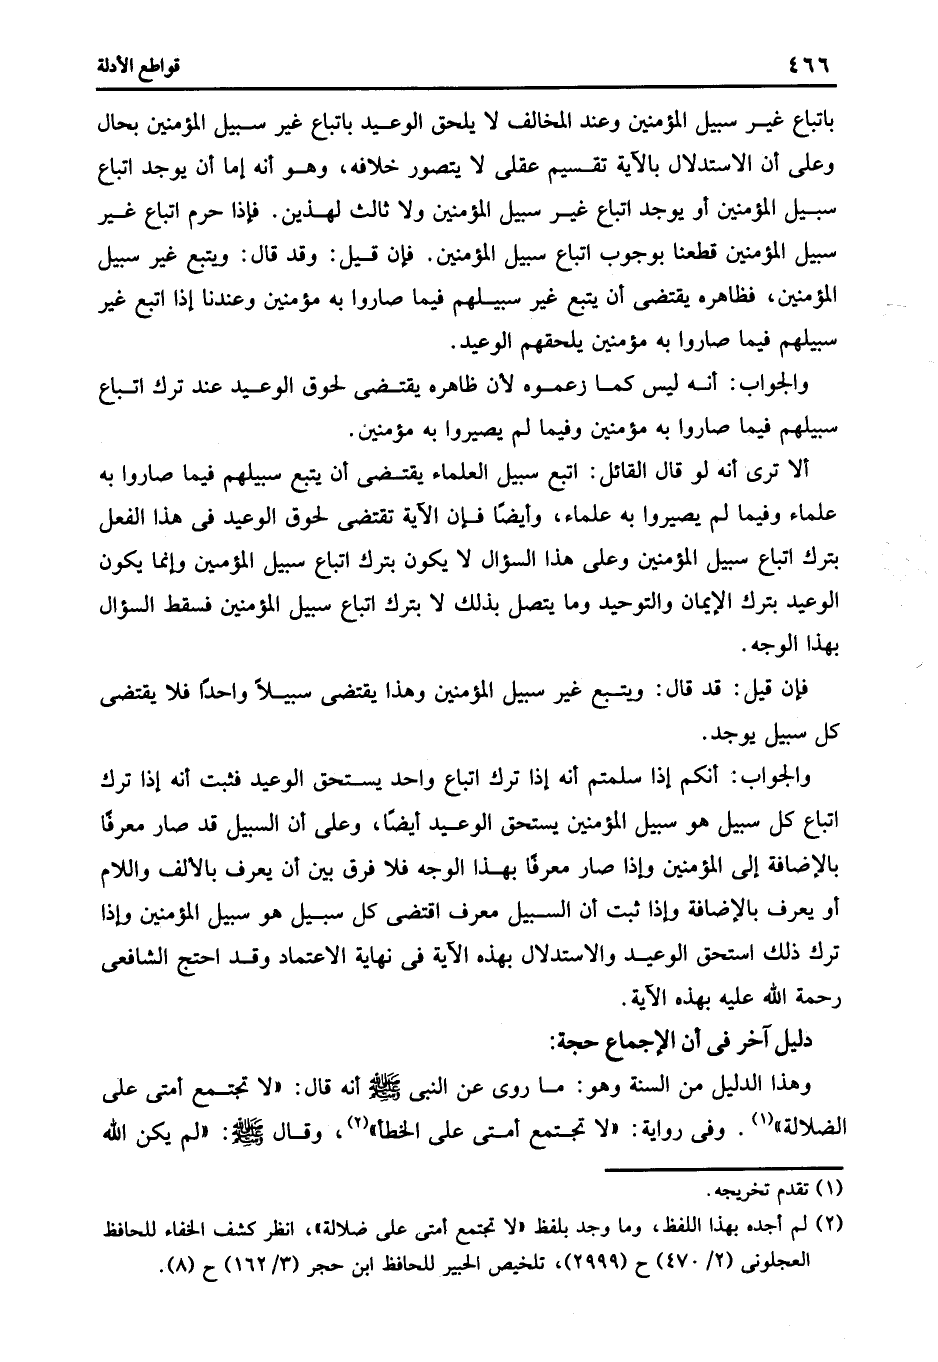 ٤٦٦ قواطع الأدلة
باتباع غير سبيل المؤمنين وعند المخالف لا يلحق الوعيد باتباع غير سبيل المؤمنين بحال
وعلى أن الاستدلال بالآية تقسيم عقلى لا يتصور خلافه، وهو أنه إما أن يوجد اتباع
سبيل المؤمنين أو يوجد اتباع غير سبيل المؤمنين ولا ثالث لهذين. فإذا حرم اتباع غير
سبيل المؤمنين قطعنا بوجوب اتباع سبيل المؤمنين. فإن قيل: وقد قال: ويتبع غير سبيل
المؤمنين، فظاهره يقتضى أن يتبع غير سبيلهم فيما صاروا به مؤمنين وعندنا إذا اتبع غير
سبيلهم فيما صاروا به مؤمنين يلحقهم الوعيد.
والجواب: أنه ليس كما زعموه لأن ظاهره يقتضى لحوق الوعيد عند ترك اتباع
سبيلهم فيما صاروا به مؤمنين وفيما لم يصيروا به مؤمنين.
ألا ترى أنه لو قال القائل: اتبع سبيل العلماء يقتضى أن يتبع سبيلهم فيما صاروا به
علماء وفيما لم يصيروا به علماء، وأيضًا فإن الآية تقتضى لحوق الوعيد فى هذا الفعل
بترك اتباع سبيل المؤمنين وعلى هذا السؤال لا يكون بترك اتباع سبيل المؤمين وإنما يكون
الوعيد بترك الإيمان والتوحيد وما يتصل بذلك لا بترك اتباع سبيل المؤمنين فسقط السؤال
بهذا الوجه.
فإن قيل: قد قال: ويتبع غير سبيل المؤمنين وهذا يقتضى سبيلاً واحدًا فلا يقتضى
كل سبيل يوجد.
والجواب: أنكم إذا سلمتم أنه إذا ترك اتباع واحد يستحق الوعيد فثبت أنه إذا ترك
اتباع كل سبيل هو سبيل المؤمنين يستحق الوعيد أيضًا، وعلى أن السبيل قد صار معرفًا
بالإضافة إلى المؤمنين وإذا صار معرفًا بهذا الوجه فلا فرق بين أن يعرف بالألف واللام
أو يعرف بالإضافة وإذا ثبت أن السبيل معرف اقتضى كل سبيل هو سبيل المؤمنين وإذا
ترك ذلك استحق الوعيد والاستدلال بهذه الآية فى نهاية الاعتماد وقد احتج الشافعى
رحمة الله عليه بهذه الآية.
دليل آخر فى أن الإجماع حجة:
وهذا الدليل من السنة وهو: ما روى عن النبى ﷺ أنه قال: «لا تجتمع أمتى على
الضلالة»(١). وفى رواية: «لا تجتمع أمتى على الخطأ»(٢)، وقال ﷺ: «لم يكن الله
(١) تقدم تخريجه.
(٢) لم أجده بهذا اللفظ، وما وجد بلفظ «لا تجتمع أمتى على ضلالة»، انظر كشف الخفاء للحافظ
العجلونى (٢/ ٤٧٠) ح (٢٩٩٩)، تلخيص الحبير للحافظ ابن حجر (٣/ ١٦٢) ح (٨).